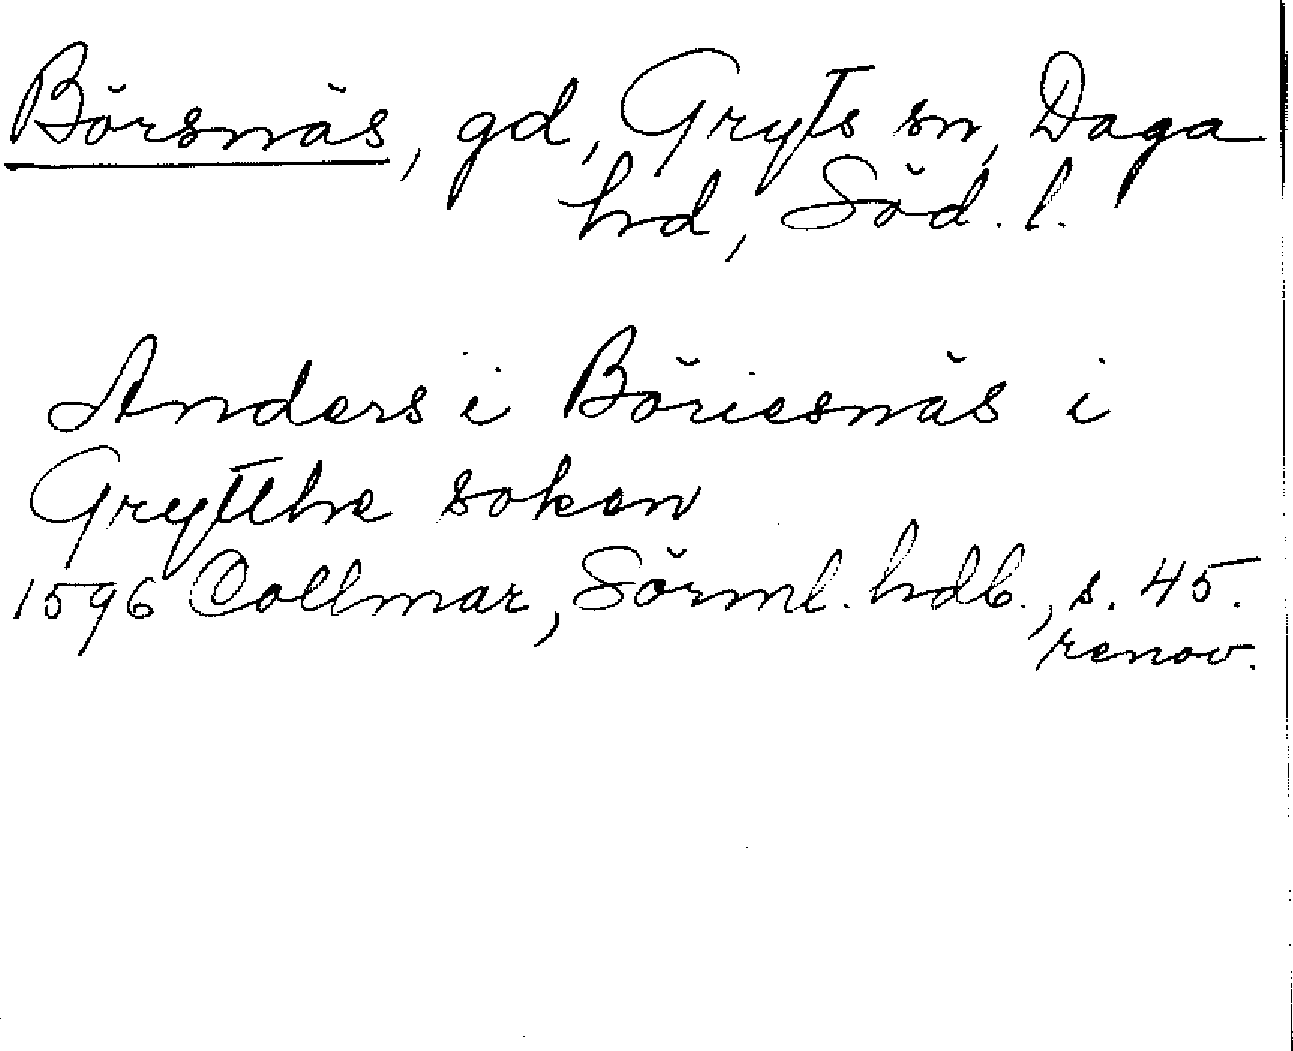 Börsnäs, gd, Gryts sn, Daga
hrd, Söd. l.
Anders i Böriesnäs i
Grytthe soken
1596 Collmar, Sörml. hdb., s. 45.
renov.